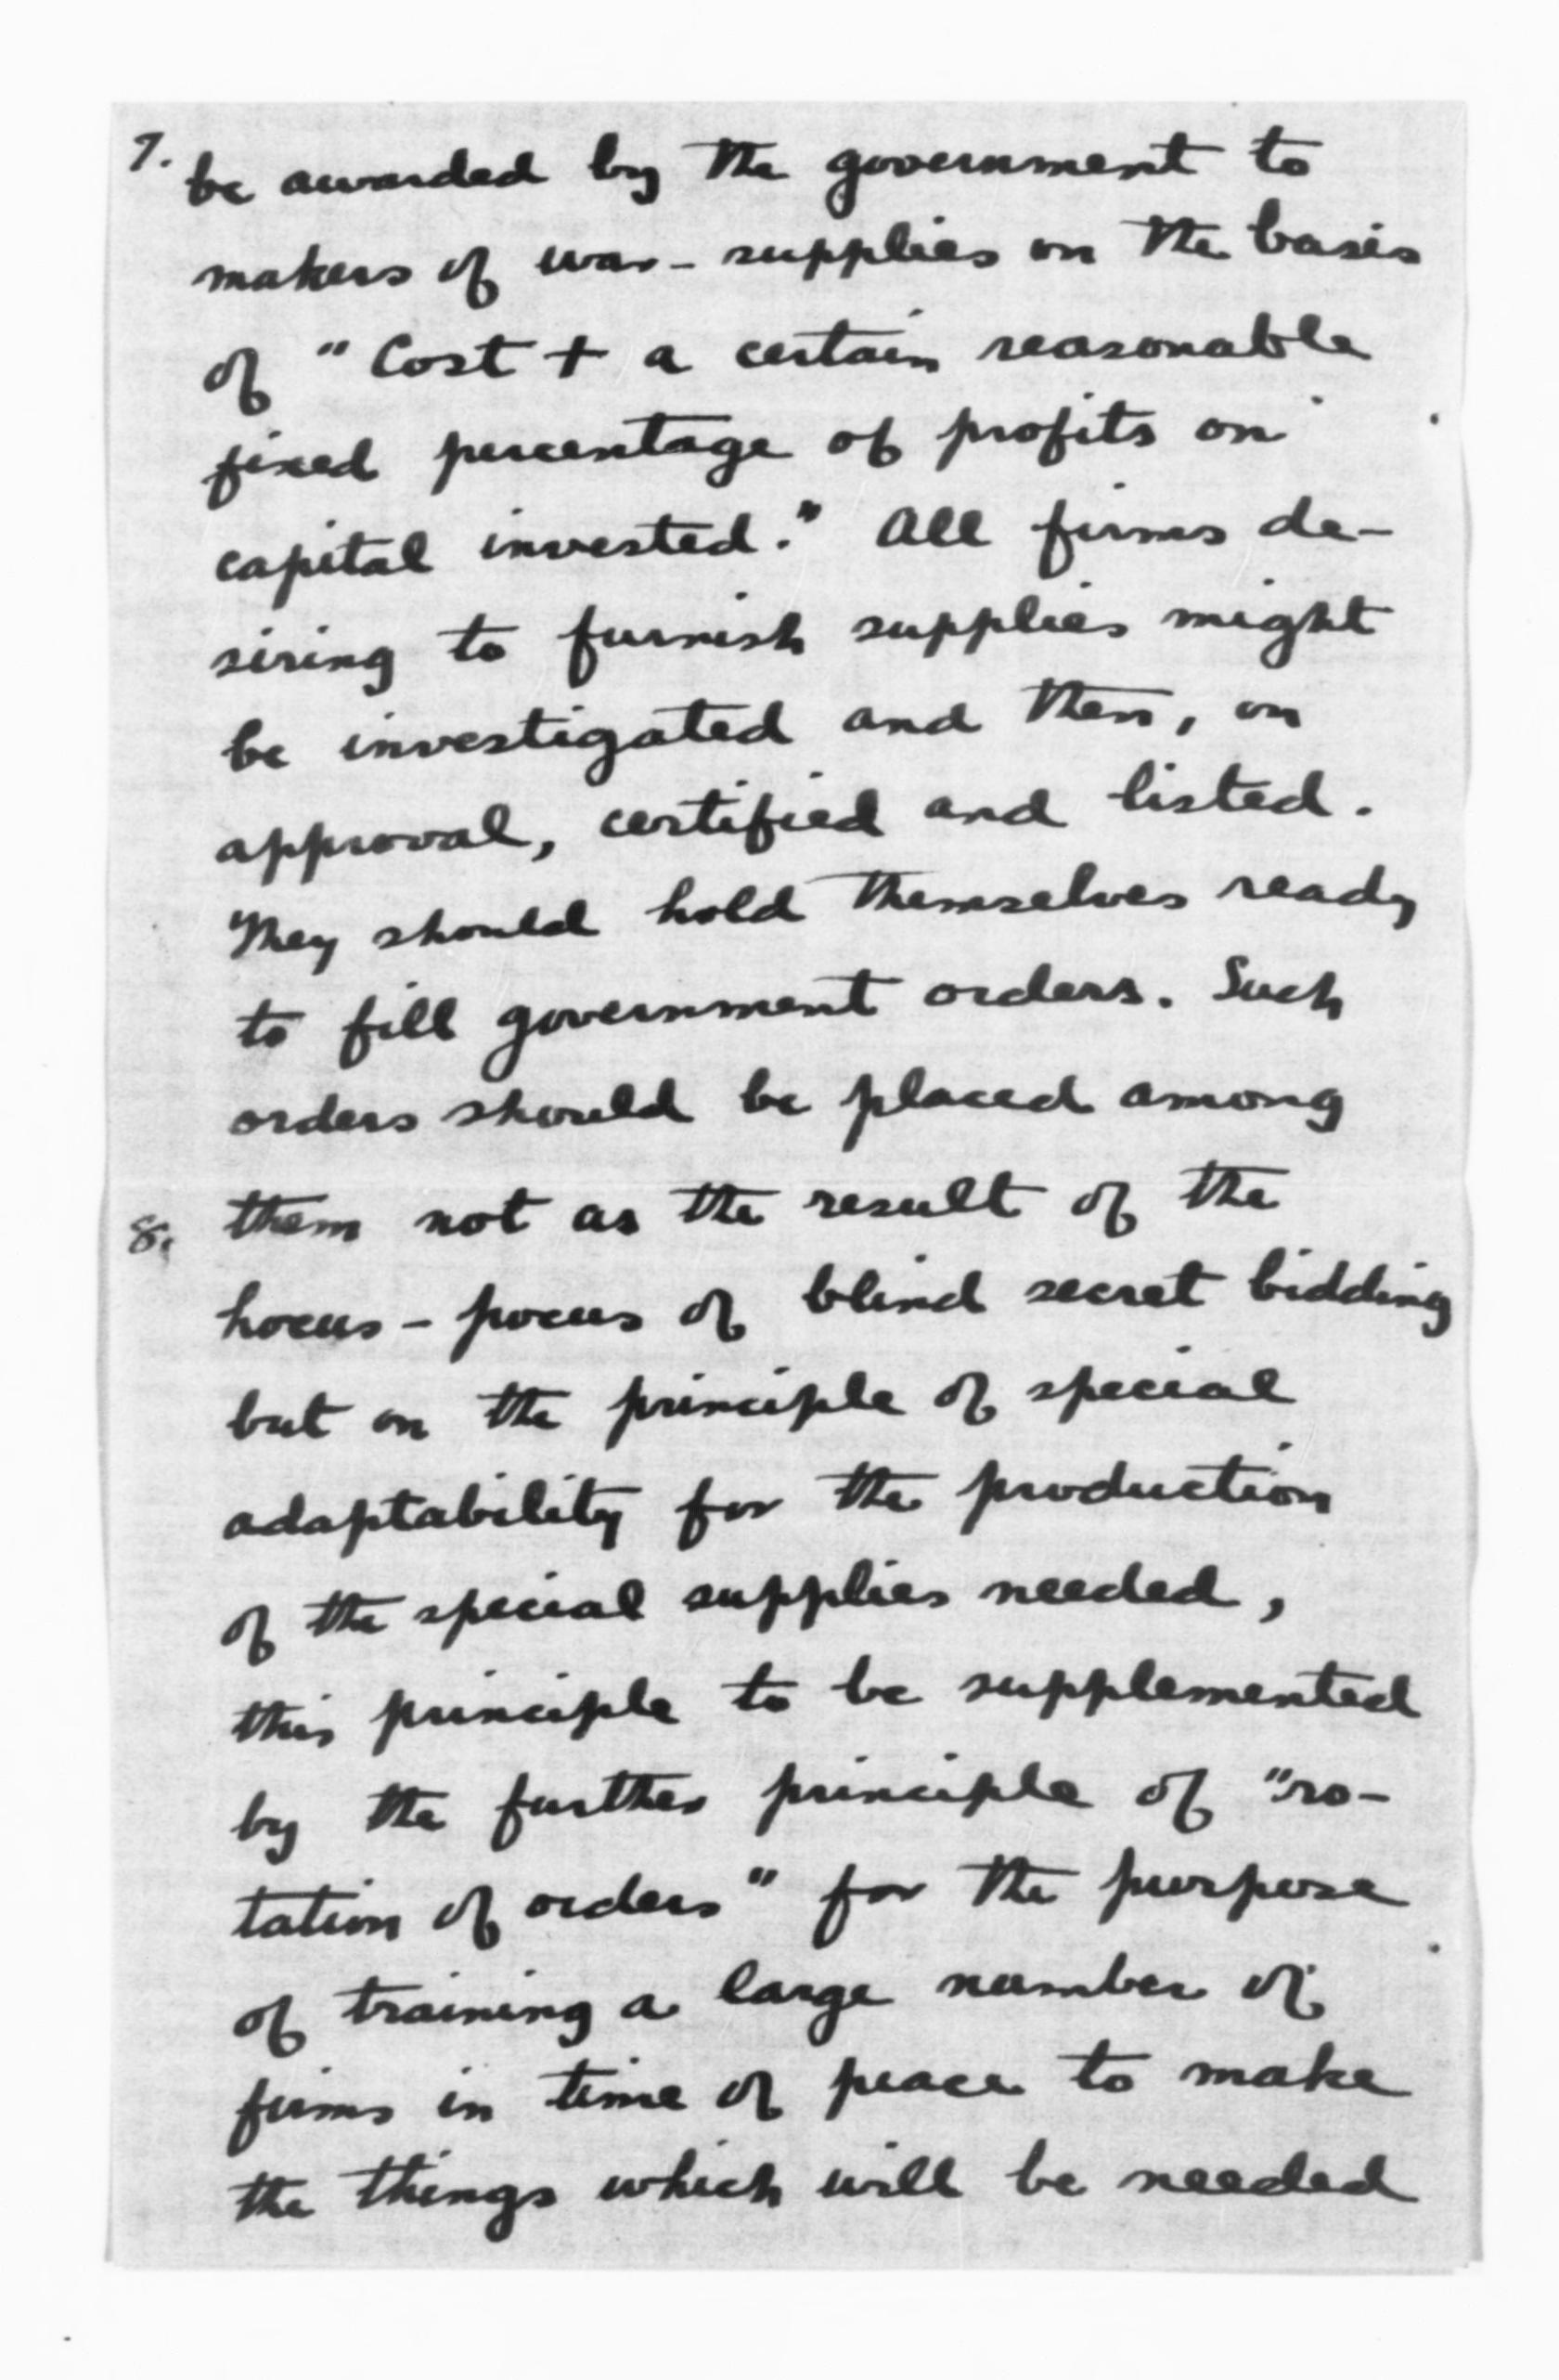 7. be awarded by the government to
makers of war-supplies on the basis
of "Cost + a certain reasonable
fixed percentage of profits on
capital invested." All firms de-
siring to furnish supplies might
be investigated and then, on
approval, certified and listed.
They should hold themselves ready
to fill government orders. Such
orders should be placed among
8. them not as the result of the
hocus-pocus of blind secret bidding
but on the principle of special
adaptability for the production
of the special supplies needed,
this principle to be supplemented
by the further principle of "ro-
tation of orders" for the purpose
of training a large number of
firms in time of peace to make
the things which will be needed